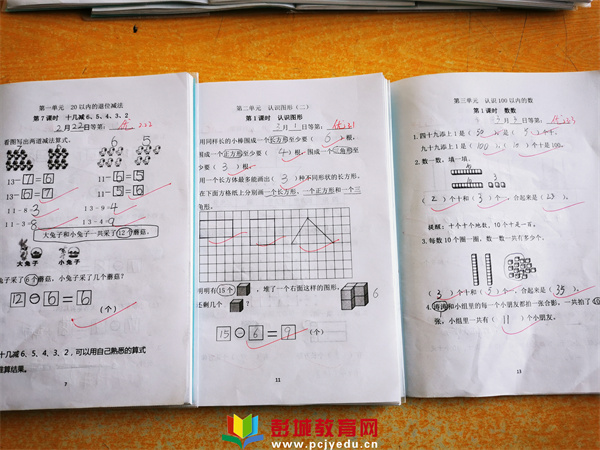 第一单元 20以内的退位减法
第7课时 十几减6、5、4、3、2
2月22日等第:优
看图写出两道减法算式。
6 7 6 5
13-6=7 11-5=6
13-7=6 11-6=5
11-8=3 13-9=4
11-3=8 13-4=9
大兔子和小兔子一共采了12个蘑菇。
大兔子 小兔子
采了6个蘑菇,小兔子采了几个蘑菇?
12-6=6(个)
十几减6、5、4、3、2,可以用自己熟悉的算式
推算结果。
7
第二单元 认识图形(二)
第1课时 认识图形
3月1日等第:优
用同样长的小棒围成一个长方形至少要(6)根,
围成一个正方形至少要(4)根,围成一个三角形至
少要(3)根。
用一个长方体最多能画出(3)种不同形状的长方形。
在下面方格纸上分别画一个长方形、一个正方形和一个三
角形。
明明有15个,堆了一个右面这样的图形,
还剩几个? 6
15-6=9(个)
11
第三单元 认识100以内的数
第1课时 数数
等第:优
1.四十九添上1是(50),
九十九添上1是(100),个十是100。
2.数一数,填一填。
(2)个十和(3)个一,合起来是(23)。
提醒:十个十个地数,10个十是一百。
3.每数10个圈一圈,数一数一共有多少个。
(3)个十和(5)个一,合起来是(35)。
4.涛涛和小组里的每一个小朋友都拍一张合影,一共拍了10
张,小组里一共有(11)个小朋友。
13
彭城教育网
www.pcjyedu.cn